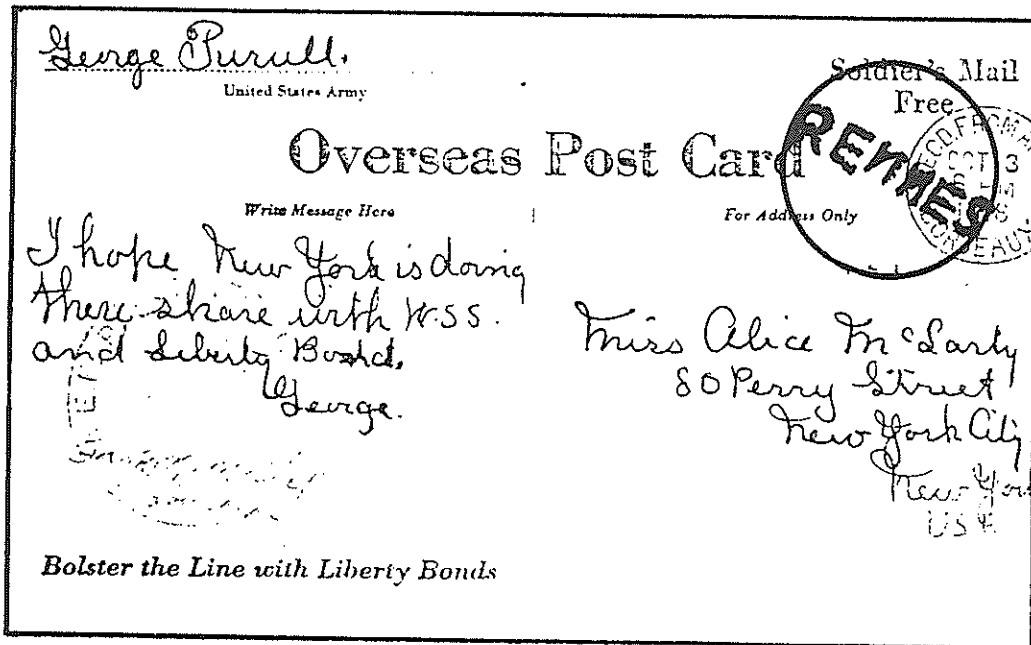 George Purull.
United States Army
Soldier's Mail
Free
Overseas Post Card
RENNES
RECD. FROM
OCT 3
BORDEAUX
Write Message Here
For Address Only
I hope New York is doing
there share with W.S.S.
and Liberty Bond.
George.
Miss Alice McLarty
80 Perry Street
New York City
New Yor
USA
Bolster the Line with Liberty Bonds